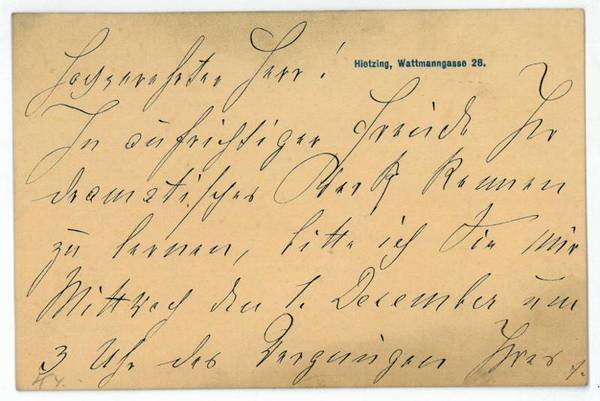 Hochverehrter Herr!
Hietzing, Wattmanngasse 28.
In aufrichtiger Freude Ihr
dramatisches Werk kennen
zu lernen, bitte ich Sie mir
Mittwoch den 1. December um
3 Uhr das Vergnügen Ihres